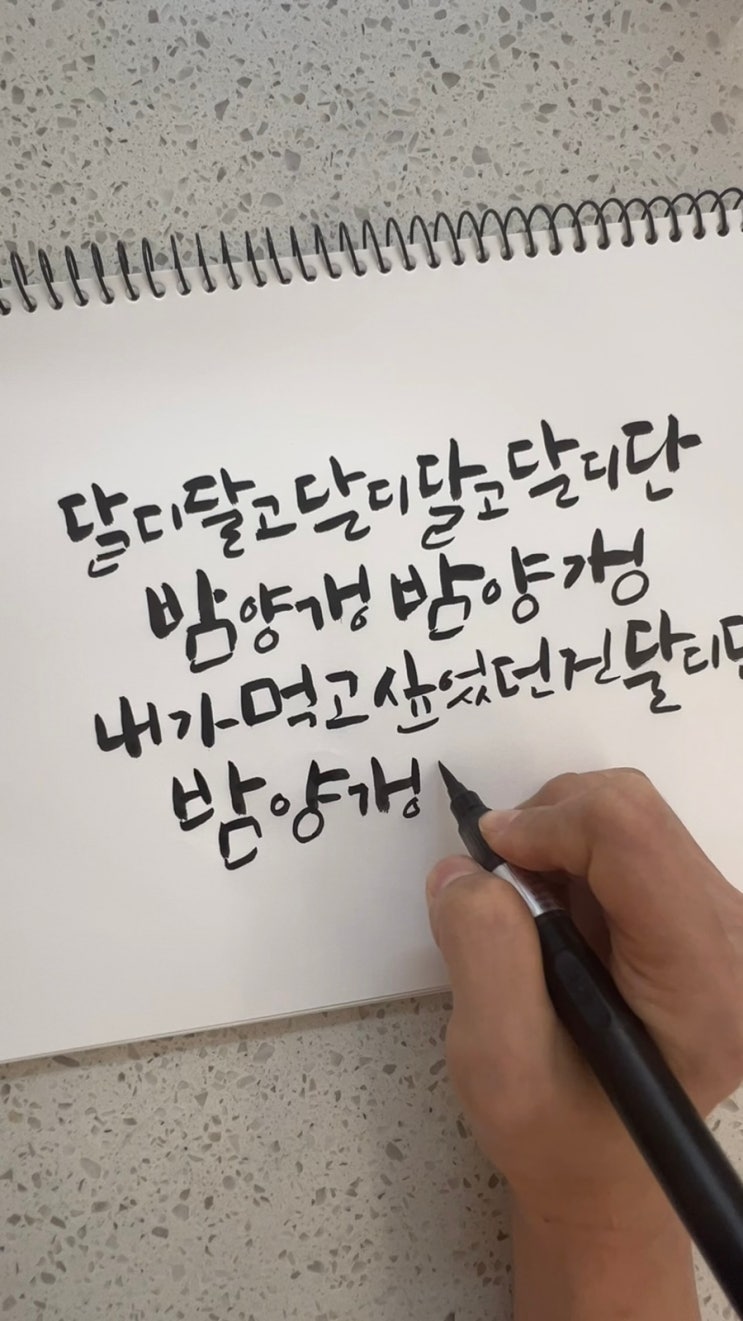 달디달고 달디달고 달디단
밤양갱 밤양갱
내가 먹고 싶었던 건 달디단
밤양갱